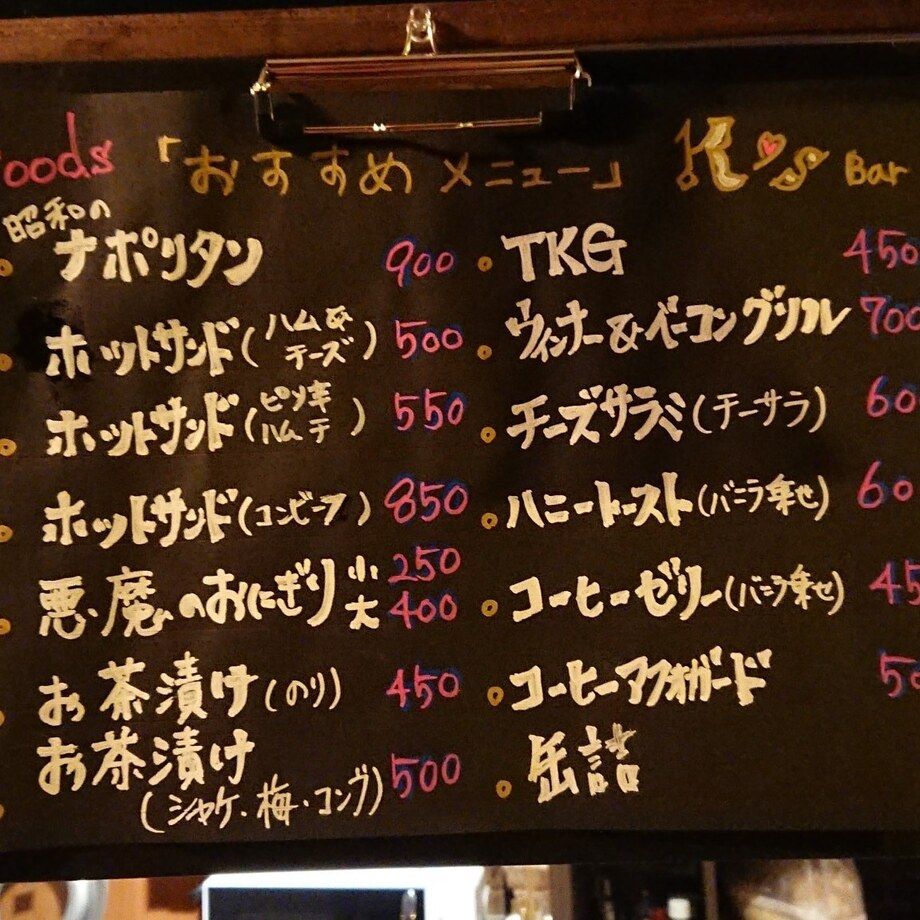 oods 「おすすめメニュー」 K's Bar
昭和の
ナポリタン 900
ホットサンド(ハム&チーズ) 500
ホットサンド(ピリ辛ハムチ) 550
ホットサンド(コンビーフ) 850
悪魔のおにぎり 小 250
大 400
お茶漬け(のり) 450
お茶漬け
(シャケ・梅・コンブ) 500
TKG 450
ウィンナー&ベーコングリル 700
チーズサラミ(チーサラ) 60
ハニートースト(バニラ乗せ) 60
コーヒーゼリー(バニラ乗せ) 45
コーヒーアフォガード 50
缶詰